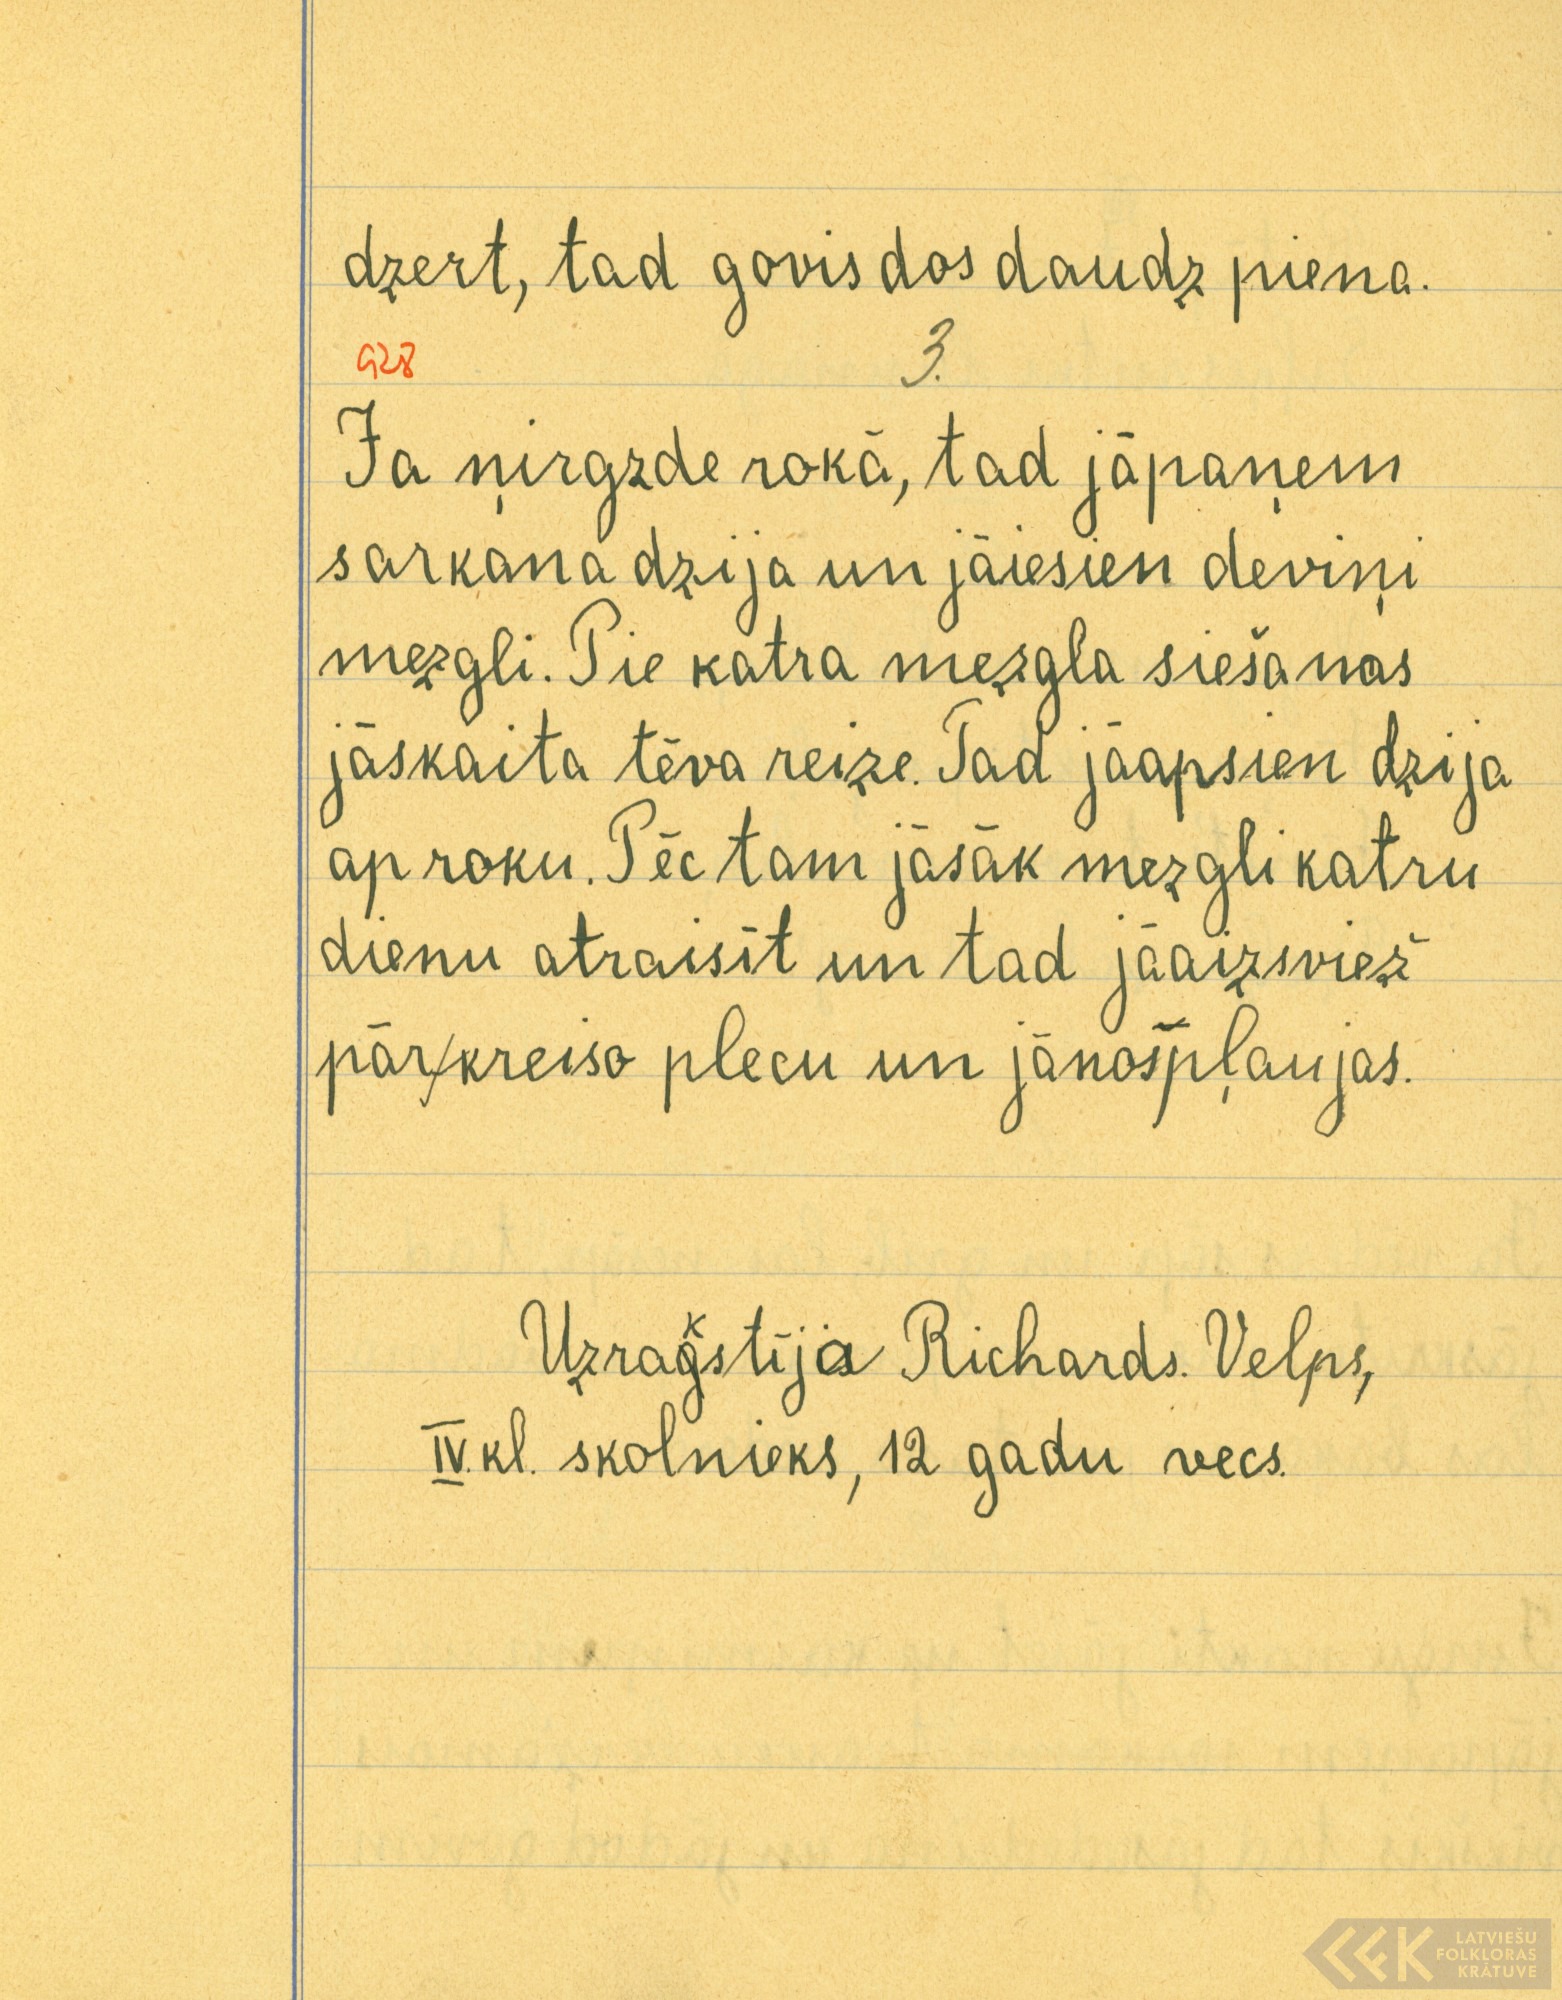 dzert, tad govis dos daudz piena.
928 3.
Ja ņirgzde rokā, tad jāpaņem
sarkana dzija un jāiesien deviņi
mezgli. Pie katra mezgla siešanas
jāskaita tēva reize. Tad jāapsien dzija
ap roku. Pēc tam jāsāk mezgli katru
dienu atraisīt un tad jāaizsviež
pār kreiso plecu un jānošpļaujas.
Uzrakstīja Richards. Velps,
IV. kl. skolnieks, 12 gadu vecs.
LATVIEŠU
FOLKLORAS
KRĀTUVE